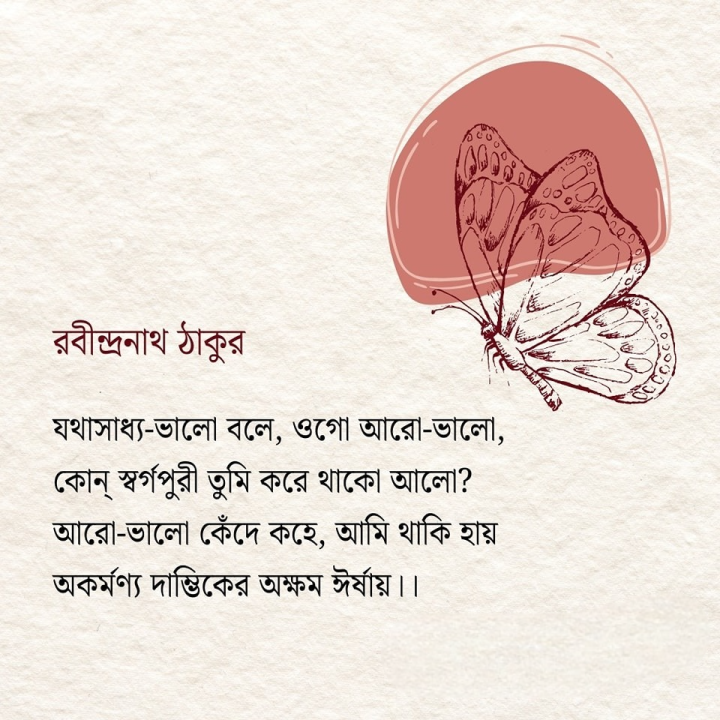 রবীন্দ্রনাথ ঠাকুর
যথাসাধ্য-ভালো বলে, ওগো আরো-ভালো,
কোন্ স্বর্গপুরী তুমি করে থাকো আলো?
আরো-ভালো কেঁদে কহে, আমি থাকি হায়
অকর্মণ্য দাম্ভিকের অক্ষম ঈর্ষায়।।